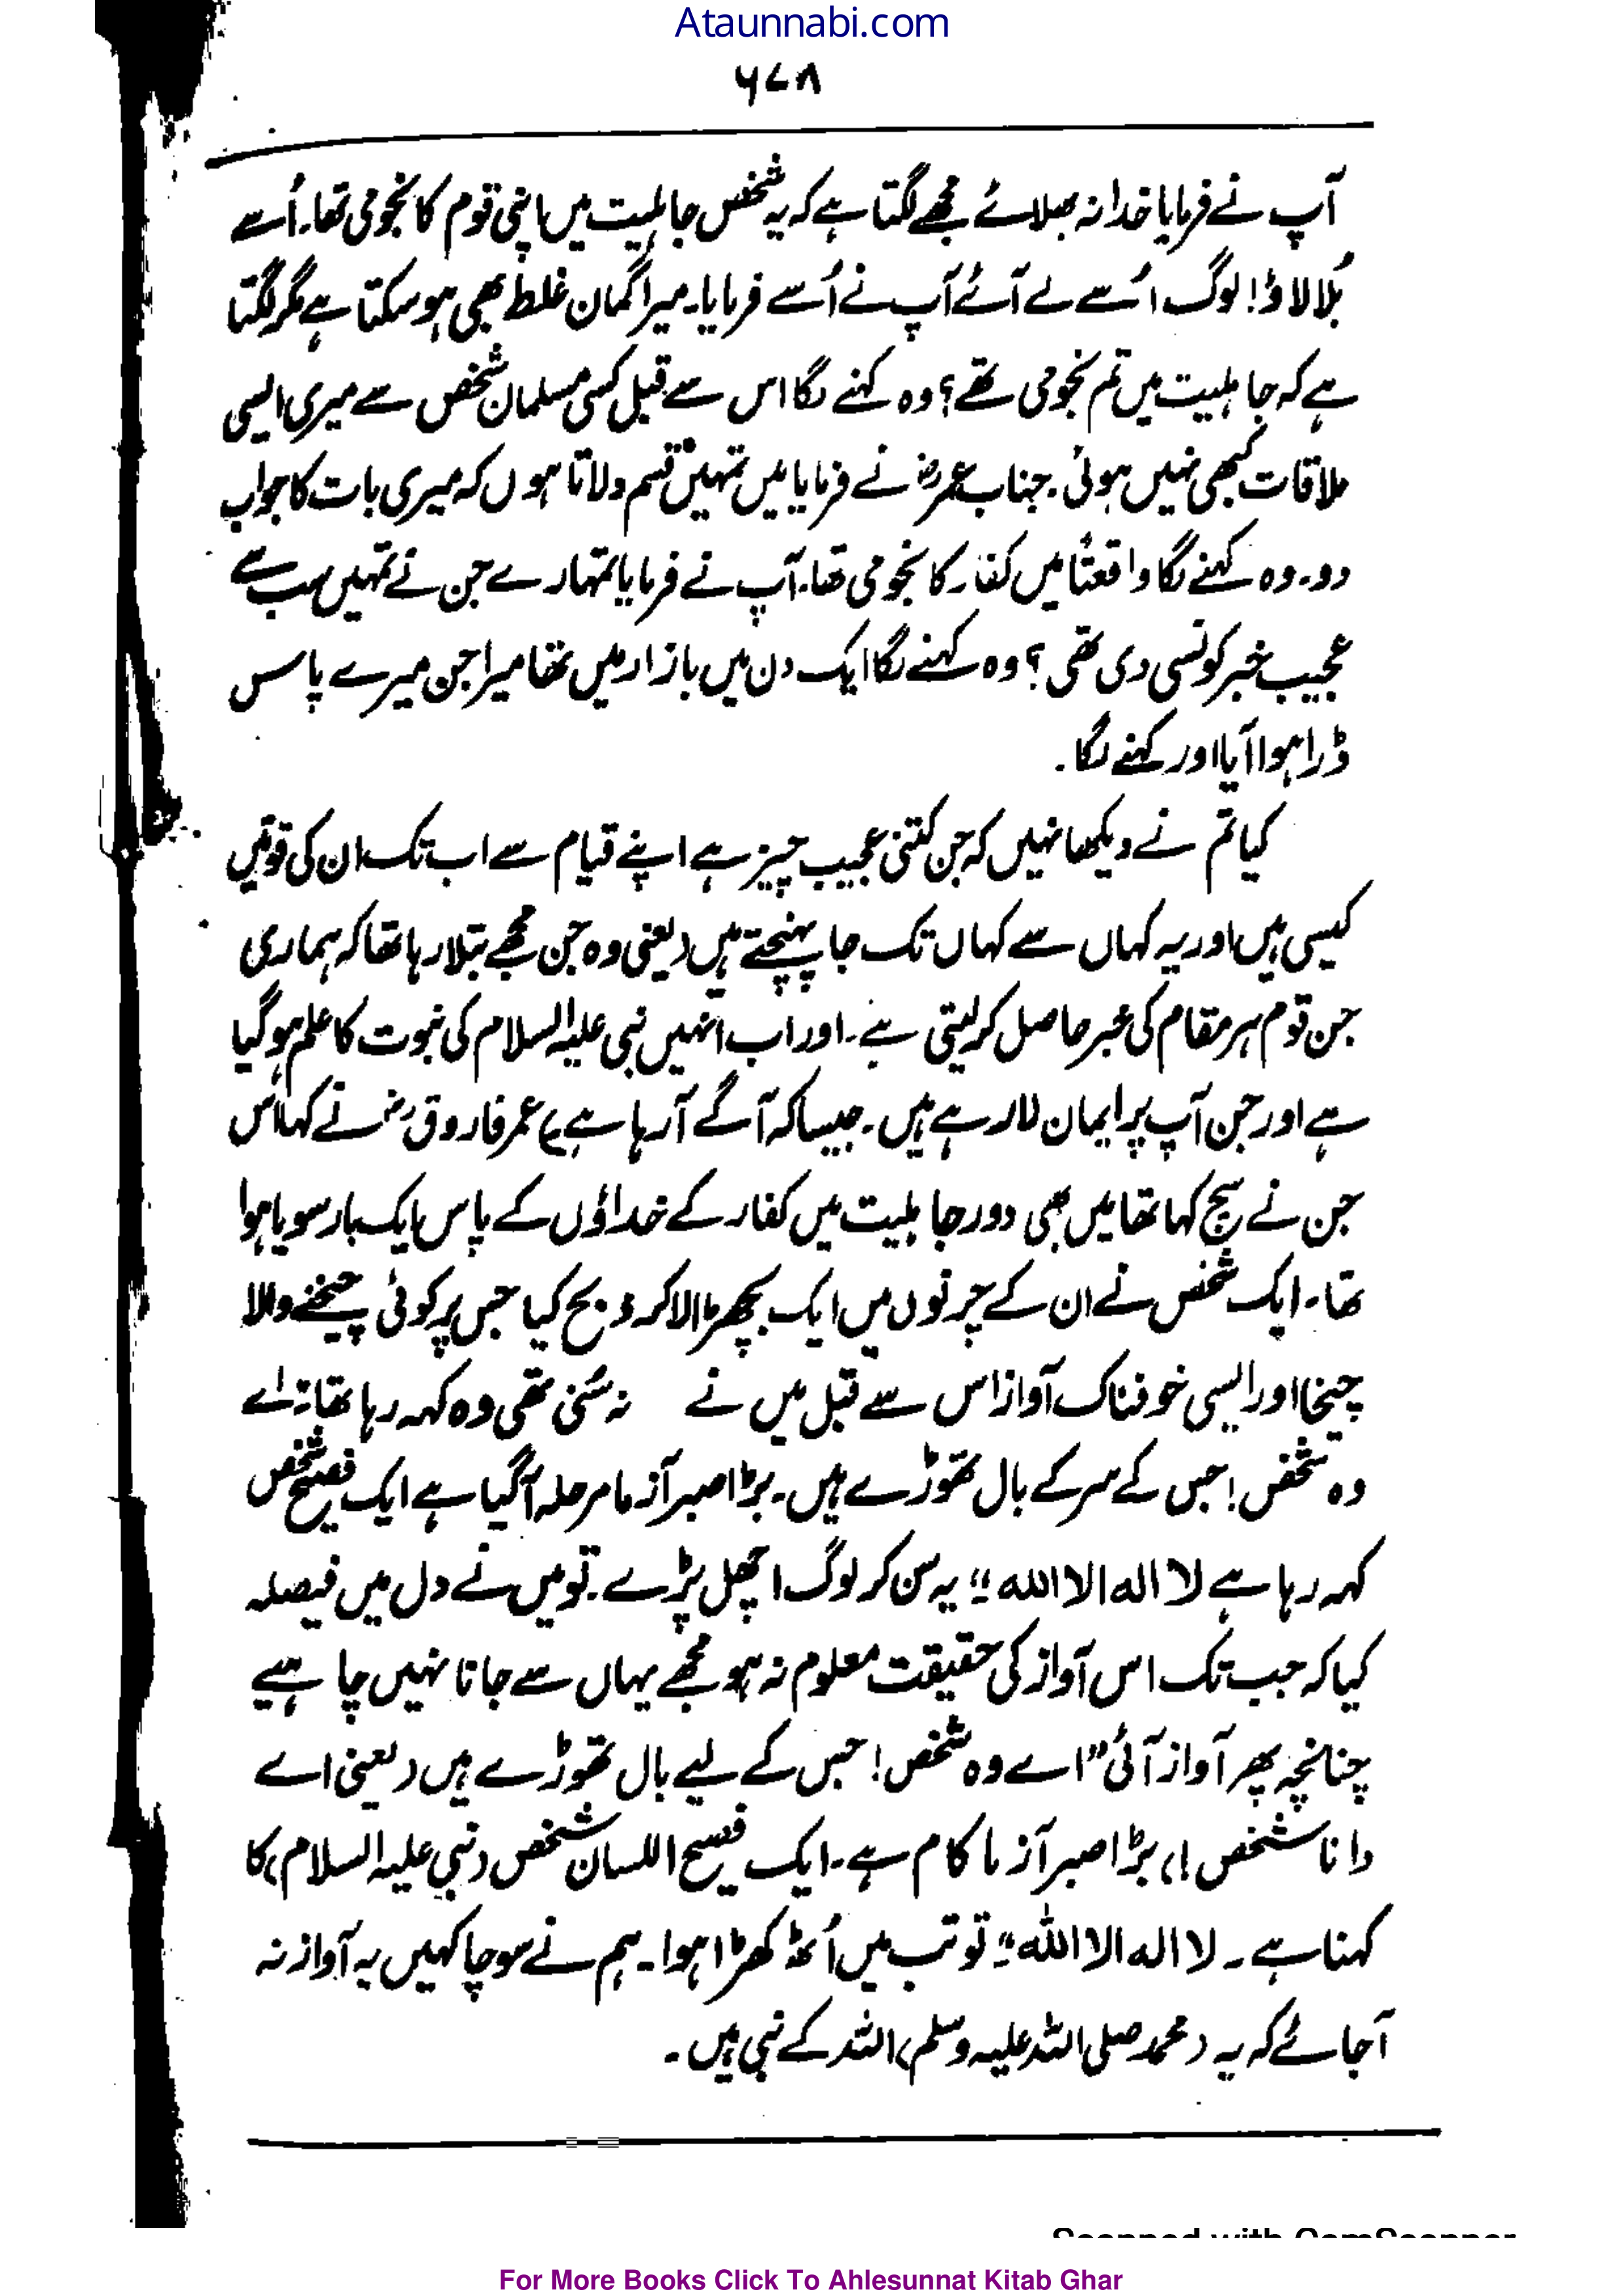 Ataunnabi.com
۶۷۸
آپ نے فرمایا خدا نہ بھلائے مجھے لگتا ہے کہ یہ شخص جاہلیت میں اپنی قوم کا نجومی تھا۔ اُسے
بُلا لاؤ! لوگ اُسے لے آئے آپ نے اُسے فرمایا۔ میرا گمان غلط بھی ہو سکتا ہے مگر لگتا
ہے کہ جاہلیت میں تم نجومی تھے؟ وہ کہنے لگا اس سے قبل کسی مسلمان شخص سے میری ایسی
ملاقات کبھی نہیں ہوئی۔ جناب عمرؓ نے فرمایا میں تمہیں قسم دلاتا ہوں کہ میری بات کا جواب
دو۔ وہ کہنے لگا واقعتاً میں کفار کا نجومی تھا۔ آپ نے فرمایا تمہارے جن نے تمہیں سب سے
عجیب خبر کونسی دی تھی؟ وہ کہنے لگا ایک دن میں بازار میں تھا میرا جن میرے پاس
ڈرا ہوا آیا اور کہنے لگا۔
کیا تم نے دیکھا نہیں کہ جن کتنی عجیب چیز ہے اپنے قیام سے اب تک ان کی قومیں
کیسی ہیں اور یہ کہاں سے کہاں تک جا پہنچتے ہیں (یعنی وہ جن مجھے بتلا رہا تھا کہ ہماری
جن قوم ہر مقام کی خبر حاصل کر لیتی ہے۔ اور اب انہیں نبی علیہ السلام کی نبوت کا علم ہو گیا
ہے اور جن آپ پر ایمان لا رہے ہیں۔ جیسا کہ آگے آ رہا ہے) عمر فاروقؓ نے کہا اس
جن نے سچ کہا تھا میں بھی دور جاہلیت میں کفار کے خداؤں کے پاس ایک بار سویا ہوا
تھا۔ ایک شخص نے ان کے چرنوں میں ایک بچھڑا لا کر ذبح کیا جس پر کوئی چیخنے والا
چیخا اور ایسی خوفناک آواز اس سے قبل میں نے نہ سُنی تھی وہ کہہ رہا تھا: اے
وہ شخص! جس کے سر کے بال تھوڑے ہیں۔ بڑا صبر آزما مرحلہ آ گیا ہے ایک فصیح شخص
کہہ رہا ہے لا الہ الا اللہ!! یہ سن کر لوگ اچھل پڑے۔ تو میں نے دل میں فیصلہ
کیا کہ جب تک اس آواز کی حقیقت معلوم نہ ہو مجھے یہاں سے جانا نہیں چاہیے
چنانچہ پھر آواز آئی "اے وہ شخص! جس کے لیے بال تھوڑے ہیں (یعنی اے
دانا شخص!) بڑا صبر آزما کام ہے۔ ایک فصیح اللسان شخص (نبی علیہ السلام) کا
کہنا ہے۔ لا الہ الا اللہ" تو تب میں اُٹھ کھڑا ہوا۔ ہم نے سوچا کہیں یہ آواز نہ
آجائے کہ یہ (محمد صلی اللہ علیہ وسلم) اللہ کے نبی ہیں۔
Scanned with CamScanner
For More Books Click To Ahlesunnat Kitab Ghar